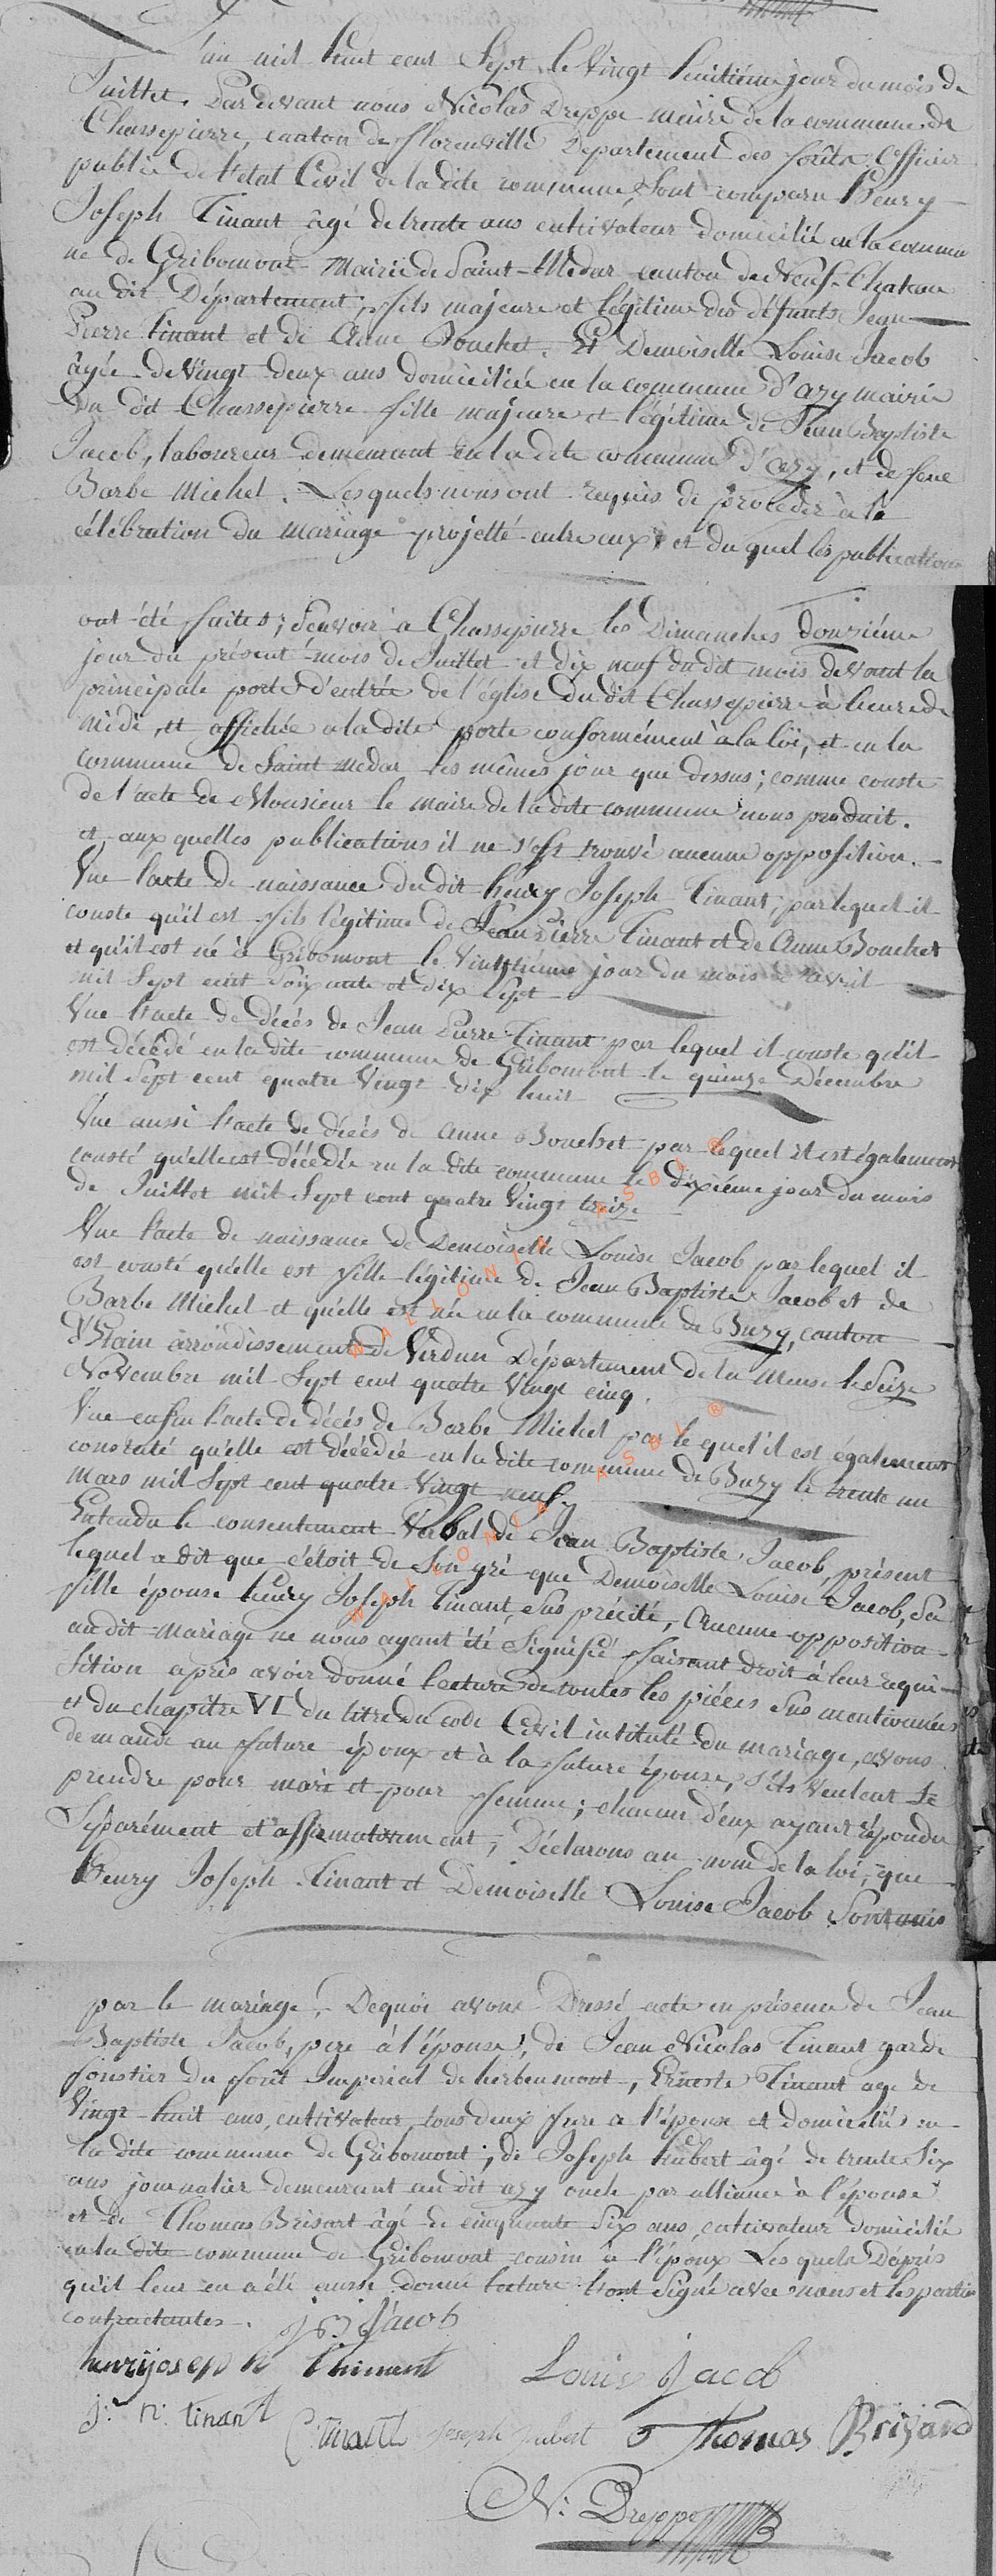 L'an mil huit cent Sept, le vingt huitième jour du mois de
Juillet. Par devant nous Nicolas Dreppe maire de la commune de
Chassepierre, canton de florenville Département des forêts, Officier
public de l'état Civil de la dite commune, Sont comparu Henry
Joseph Tinant âgé de trente ans cultivateur domicilié en la commu
ne de Gribomont Mairie de Saint-Médar canton de Neuf-Chateau
au dit Département; fils majeure et légitime des défunts Jean
Pierre tinant et de Anne Bouchet. Et Demoiselle Louise Jacob
âgée de vingt deux ans domiciliée en la commune d'azy mairie
du dit Chassepierre fille majeure et légitime de Jean Baptiste
Jacob, laboureur demeurant en la dite commune d'azy, et de feue
Barbe Michel. Lesquels nous ont requis de procéder à la
célébration du mariage projetté entre eux, et du quel les publications
ont été faites; Sçavoir à Chassepierre les Dimanches douzième
jour du présent mois de Juillet et dix neuf du dit mois devant la
principale porte d'entrée de l'église du dit Chassepierre à heure de
midi, et affichée a la dite porte conformément à la loi, et en la
commune de Saint medar les mêmes jour que dessus; comme conste
de l'acte de Monsieur le maire de la dite commune nous produit.
et aux quelles publications il ne s'est trouvé aucune opposition.
Vue l'acte de naissance du dit henry Joseph Tinant, par lequel il
conste qu'il est fils légitime de Jean Pierre Tinant et de Anne Bouchet
et qu'il est né à Gribomont le vingtième jour du mois d'avril
mil Sept cent Soixante et dix Sept
Vue l'acte de décès de Jean Pierre Tinant par lequel il conste qu'il
est décédé en la dite commune de Gribomont le quinze Décembre
mil Sept cent quatre vingt dix huit
Vue aussi l'acte de décès de Anne Bouchet par lequel il est également
consté qu'elle est décédée en la dite commune le dixième jour du mois
de Juillet mil Sept cent quatre vingt treize
Vue l'acte de naissance de Demoiselle Louise Jacob par lequel il
est consté qu'elle est fille légitime de Jean Baptiste Jacob et de
Barbe Michel et qu'elle est née en la commune de Buzy, canton
d'Etain arrondissement de Verdun Département de la Meuse le Seize
Novembre mil Sept cent quatre vingt cinq.
Vue enfin l'acte de décès de Barbe Michel par le quel il est également
constaté qu'elle est décédée en la dite commune de Buzy le trente un
mars mil Sept cent quatre vingt neuf.
Entendu le consentement verbal de Jean Baptiste Jacob, présent
lequel a dit que c'étoit de Son gré que Demoiselle Louise Jacob, Sa
fille épouse henry Joseph Tinant Sus précité, Aucune opposition
au dit mariage ne nous ayant été Signifié faisant droit à leur requi-
sition après avoir donné lecture de toutes les pièces Sus mentionnées
et du chapitre VI du titre du code Civil intitulé du mariage, avons
demandé au future époux et à la future épouse, S'ils veulent Se
prendre pour mari et pour femme; chacun d'eux ayant répondu
Séparément et affirmativement, Déclarons au nom de la loi, que
Henry Joseph Tinant et Demoiselle Louise Jacob Sont unis
par le mariage. Dequoi avons Dressé acte en présence de Jean
Baptiste Jacob, pere à l'épouse, de Jean Nicolas Tinant garde
forestier du forêt Imperial de herbeumont, Erneste Tinant age de
vingt huit ans, cultivateur tous deux frere a l'épouse et domiciliés en
la dite commune de Gribomont; de Joseph hubert âgé de trente Six
ans journalier demeurant au dit azy oncle par alliance à l'épouse
et de Thomas Brisart âgé de cinquante Six ans, cultivateur domicilié
en la dite commune de Gribomont cousin à l'époux Les quels D'après
qu'il leur en a été aussi donné lecture l'ont Signé avec nous et les parties
contractantes. J B Jacob
henrijoseph thinant Louise Jacob
j: n: tinant E tinant Joseph hubert Thomas Brisard
N: Dreppe
WALLONIA ASBL ®
WALLONIA ASBL ®